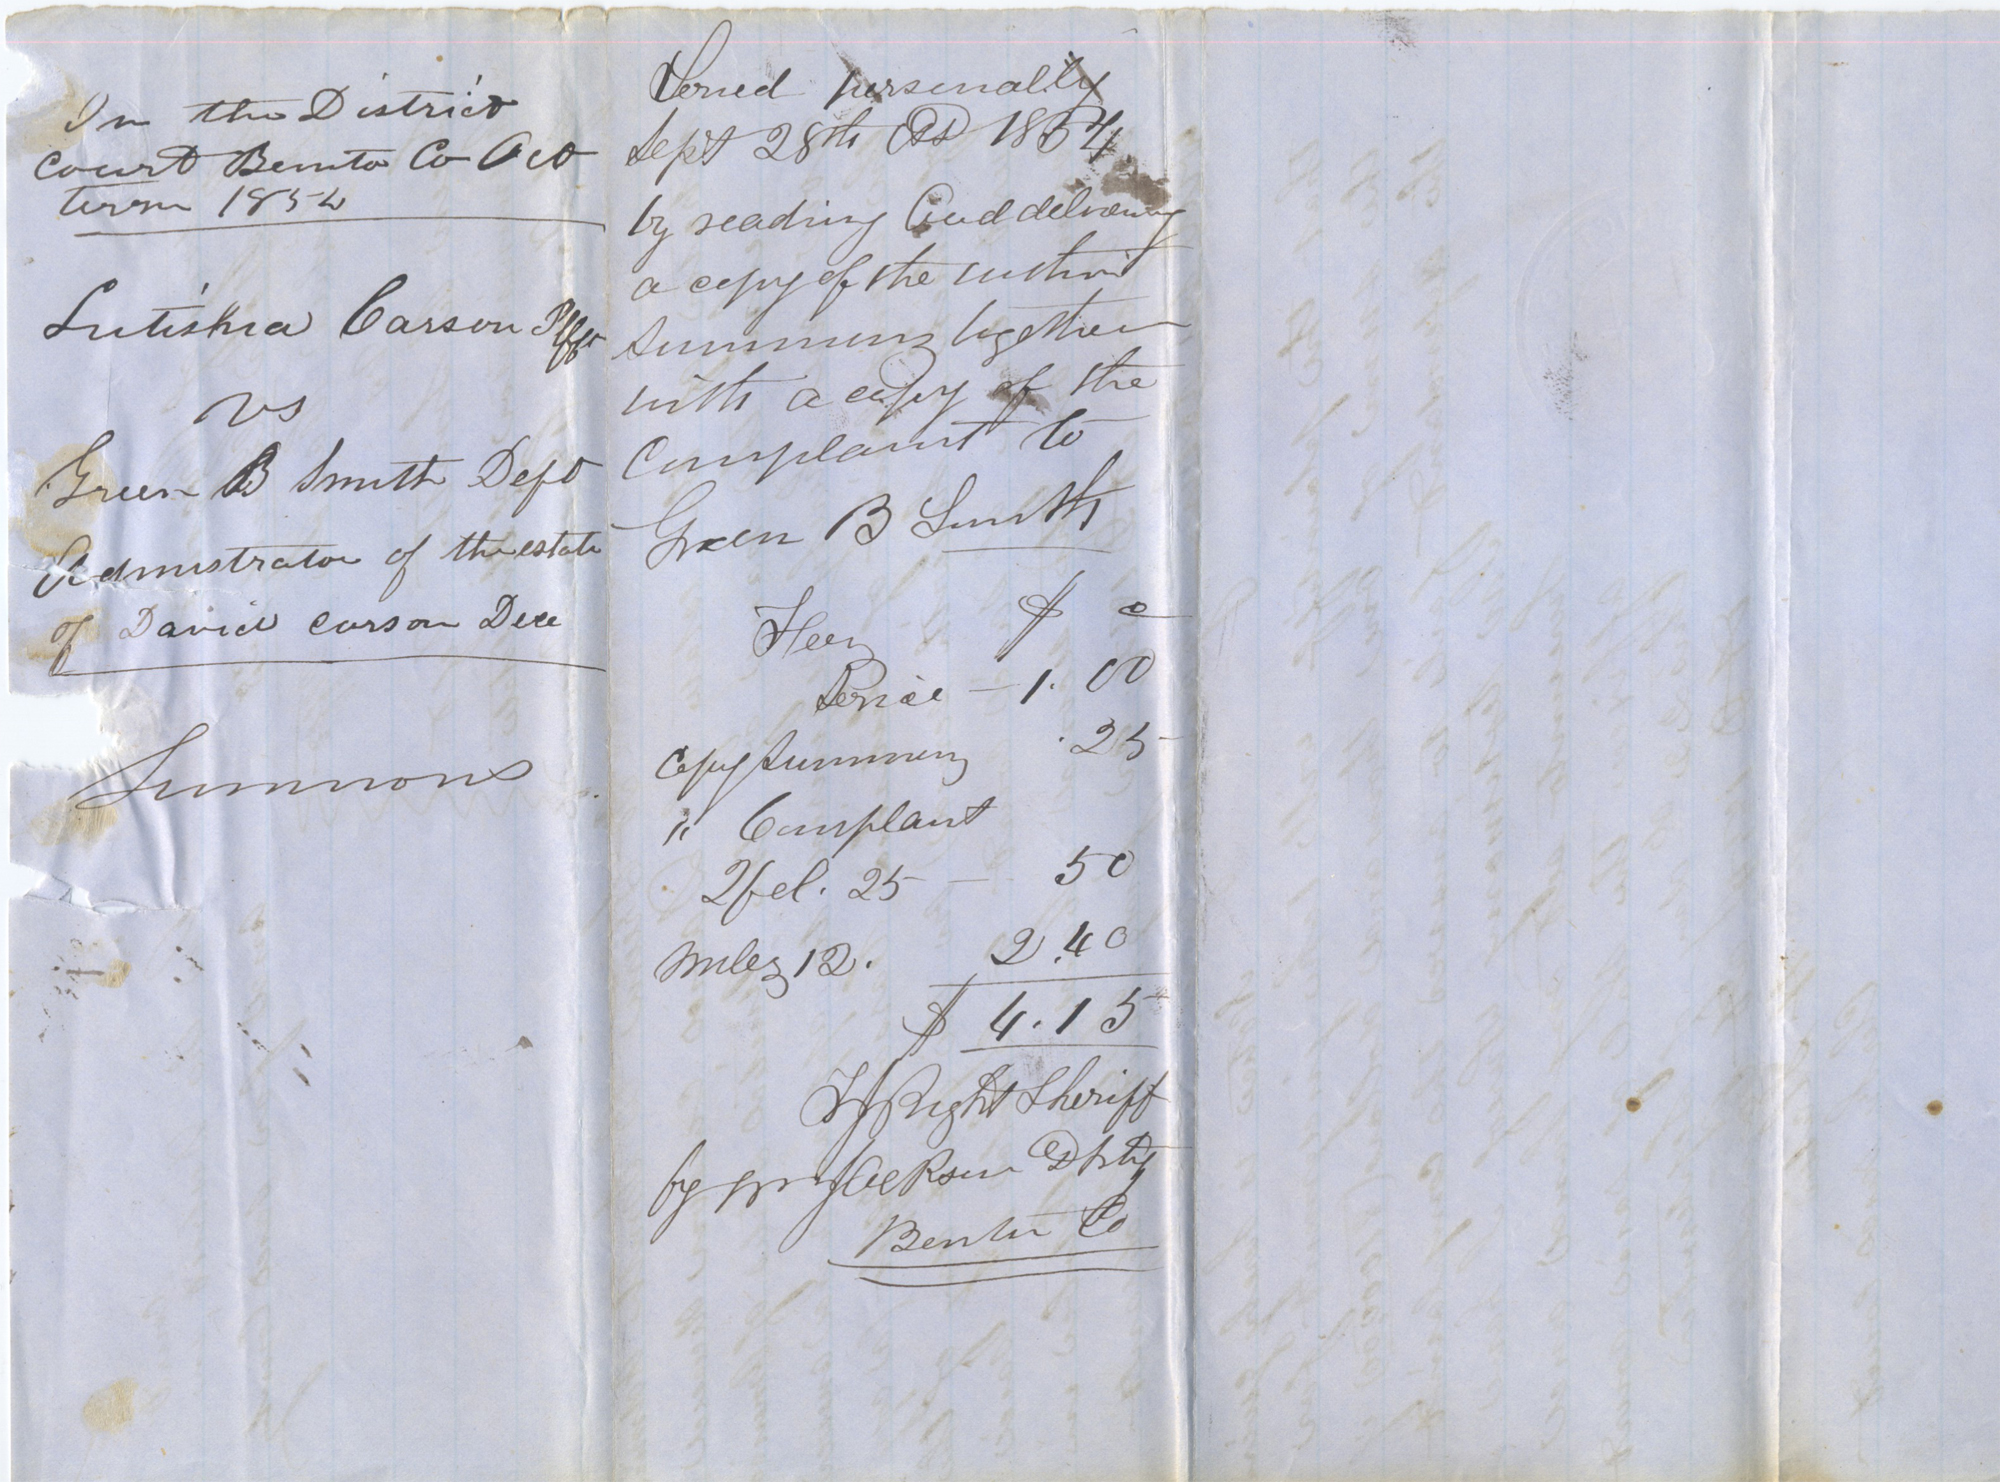 In the District
court Benton Co Oct
term 1854
Lutishia Carson Plff
vs
Green B Smith Deft
Admistrator of the estate
of David Carson Dece
Summons
Served personally
Sept 28th AD 1854
by reading and delivering
a copy of the within
Summons together
with a copy of the
Complaint to
Green B Smith
Fees $ c
Service — 1.00
Copy Summons .25
" Complaint
2 fol. 25 — 50
Miles 12. 2.40
$ 4.15
Right Sheriff
by Jackson Dpty
Benton Co